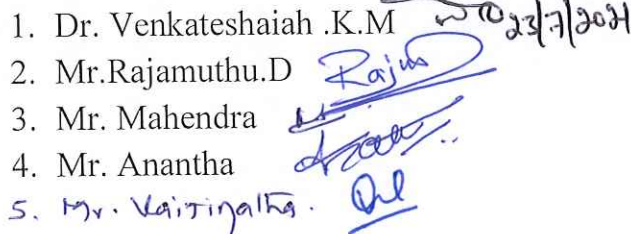 1. Dr. Venkateshaiah .K.M 23/7/2021
2. Mr.Rajamuthu.D
3. Mr. Mahendra
4. Mr. Anantha
5. Mr.